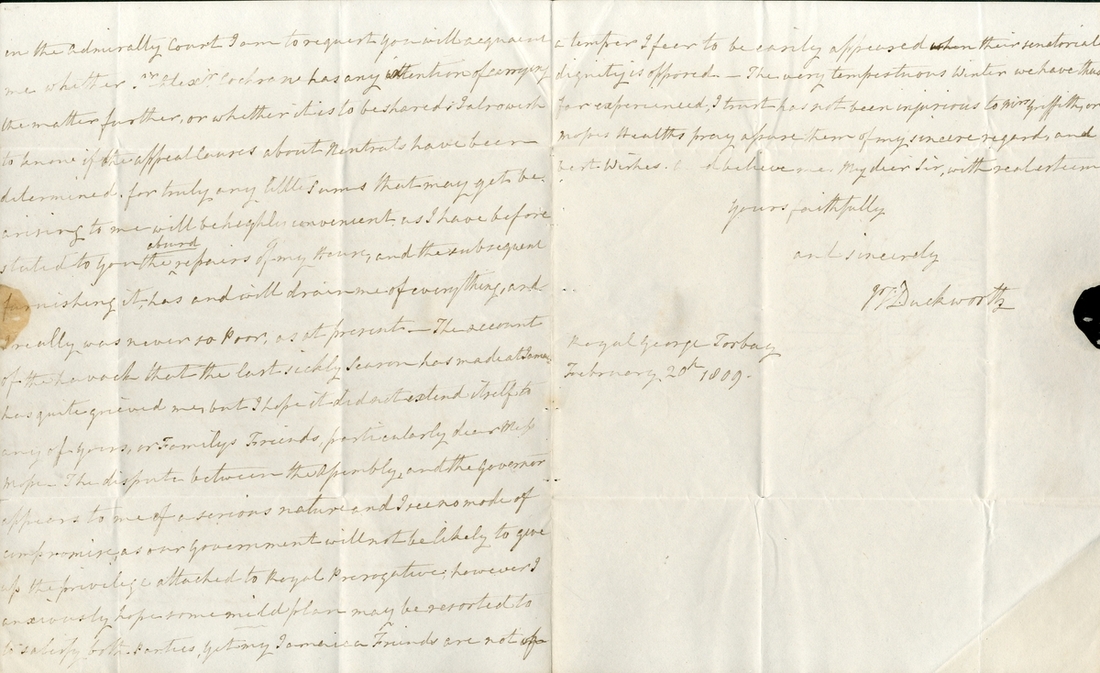 in the Admiralty Court I am to request you will acquaint
me whether Sr. Alexr. Cochrane has any intention of carrying
the matter further, or whether it is to be shared; I also wish
to know if the appeal Causes about Neutrals have been
determined. for truly any little sums that may yet be
arising to me will be highly convenient as I have before
stated to you the absurd repairs of my House, and the subsequent
furnishing it, has and will drain me of everything, and
I really was never so Poor, as at present. — The account
of the havock that the last sickly Season has made at Jamaica
has quite grieved me, but I hope it did not extend itself to
any of yours, or Familys Friends, particularly dear Miss
The dispute between the Assembly, and the Governor
appears to me of a serious nature and I see no mode of
compromise, as our Government will not be likely to give
up the privilege attached to Royal Prerogative, however I
anxiously hope some mild plan may be resorted to
to satisfy both Parties, yet my Jamaica Friends are not of
a temper I fear to be easily appeased when their senatorial
dignity is opposed. — The very tempestuous Winter we have thus
far experienced, I trust has not been injurious to Mrs Griffith, or
Healths pray assure them of my sincere regards, and
best Wishes. believe me, My dear Sir, with real esteem
Yours faithfully
and sincerely
Duckworth
Royal George Torbay
February 20th 1809.